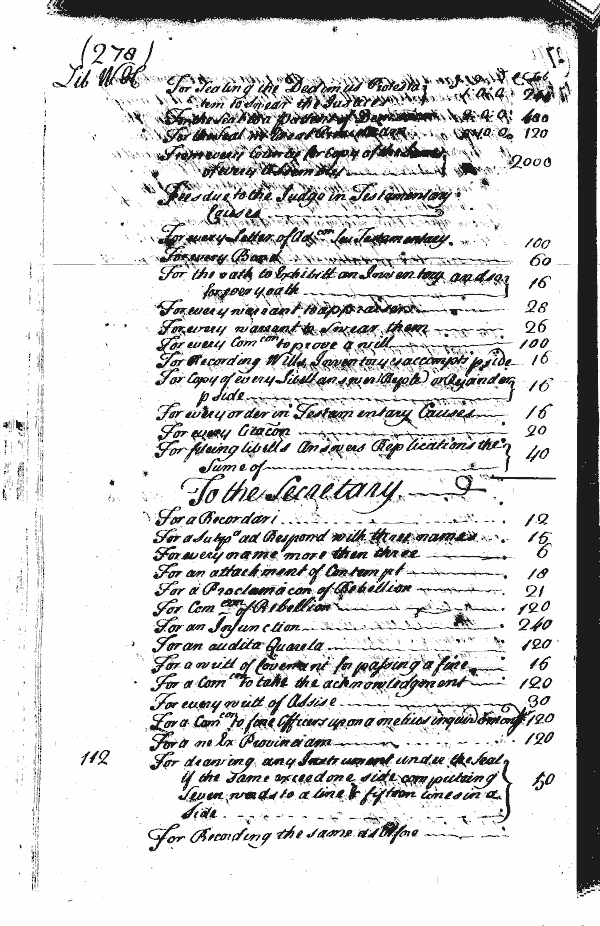 (278)
Lib W H
For Sealing the Dedimus Protesta
tem to Swear the Justices 0.0.0: 240
0.0.0: 600
For the Seal 0.0.0: 120
From every County for Copy of the
of every Assembly 2000
Fees due to the Judge in Testamentary
Causes
For every Letter of Ad con Testamentary. 100
For every Bond 60
For the oath to Exhibitt an Inventory and so
for every oath 16
For every warrant to appraisers 28
For every warrant to Swear them 26
For every Com con to prove a will 100
For Recording Wills Inventorys accompts p side 16
For Copy of every Libell answer
p side 16
For every order in Testamentary Causes 16
For every Citacon 20
For fileing libells Answers Replications the
Sume of 40
To the Secretary
For a Recordari 12
For a Subp a ad Respond with three names 15
For every name more then three 6
For an attachment of Contempt 18
For a Proclamacon of Rebellion 21
For Com con of Rebellion 120
For an Injunction 240
For an audita Quaerela 120
For a writt of Covenant for passing a fine 16
For a Com con to take the acknowledgement 120
For every writt of Assise 30
For a Com con to 120
For a ne Ex Provinciam 120
112
For drawing any Instrument under the Seal
if the same exceed one side computeing
Seven words to a line & fifteen lines in a
side 50
For Recording the same as before